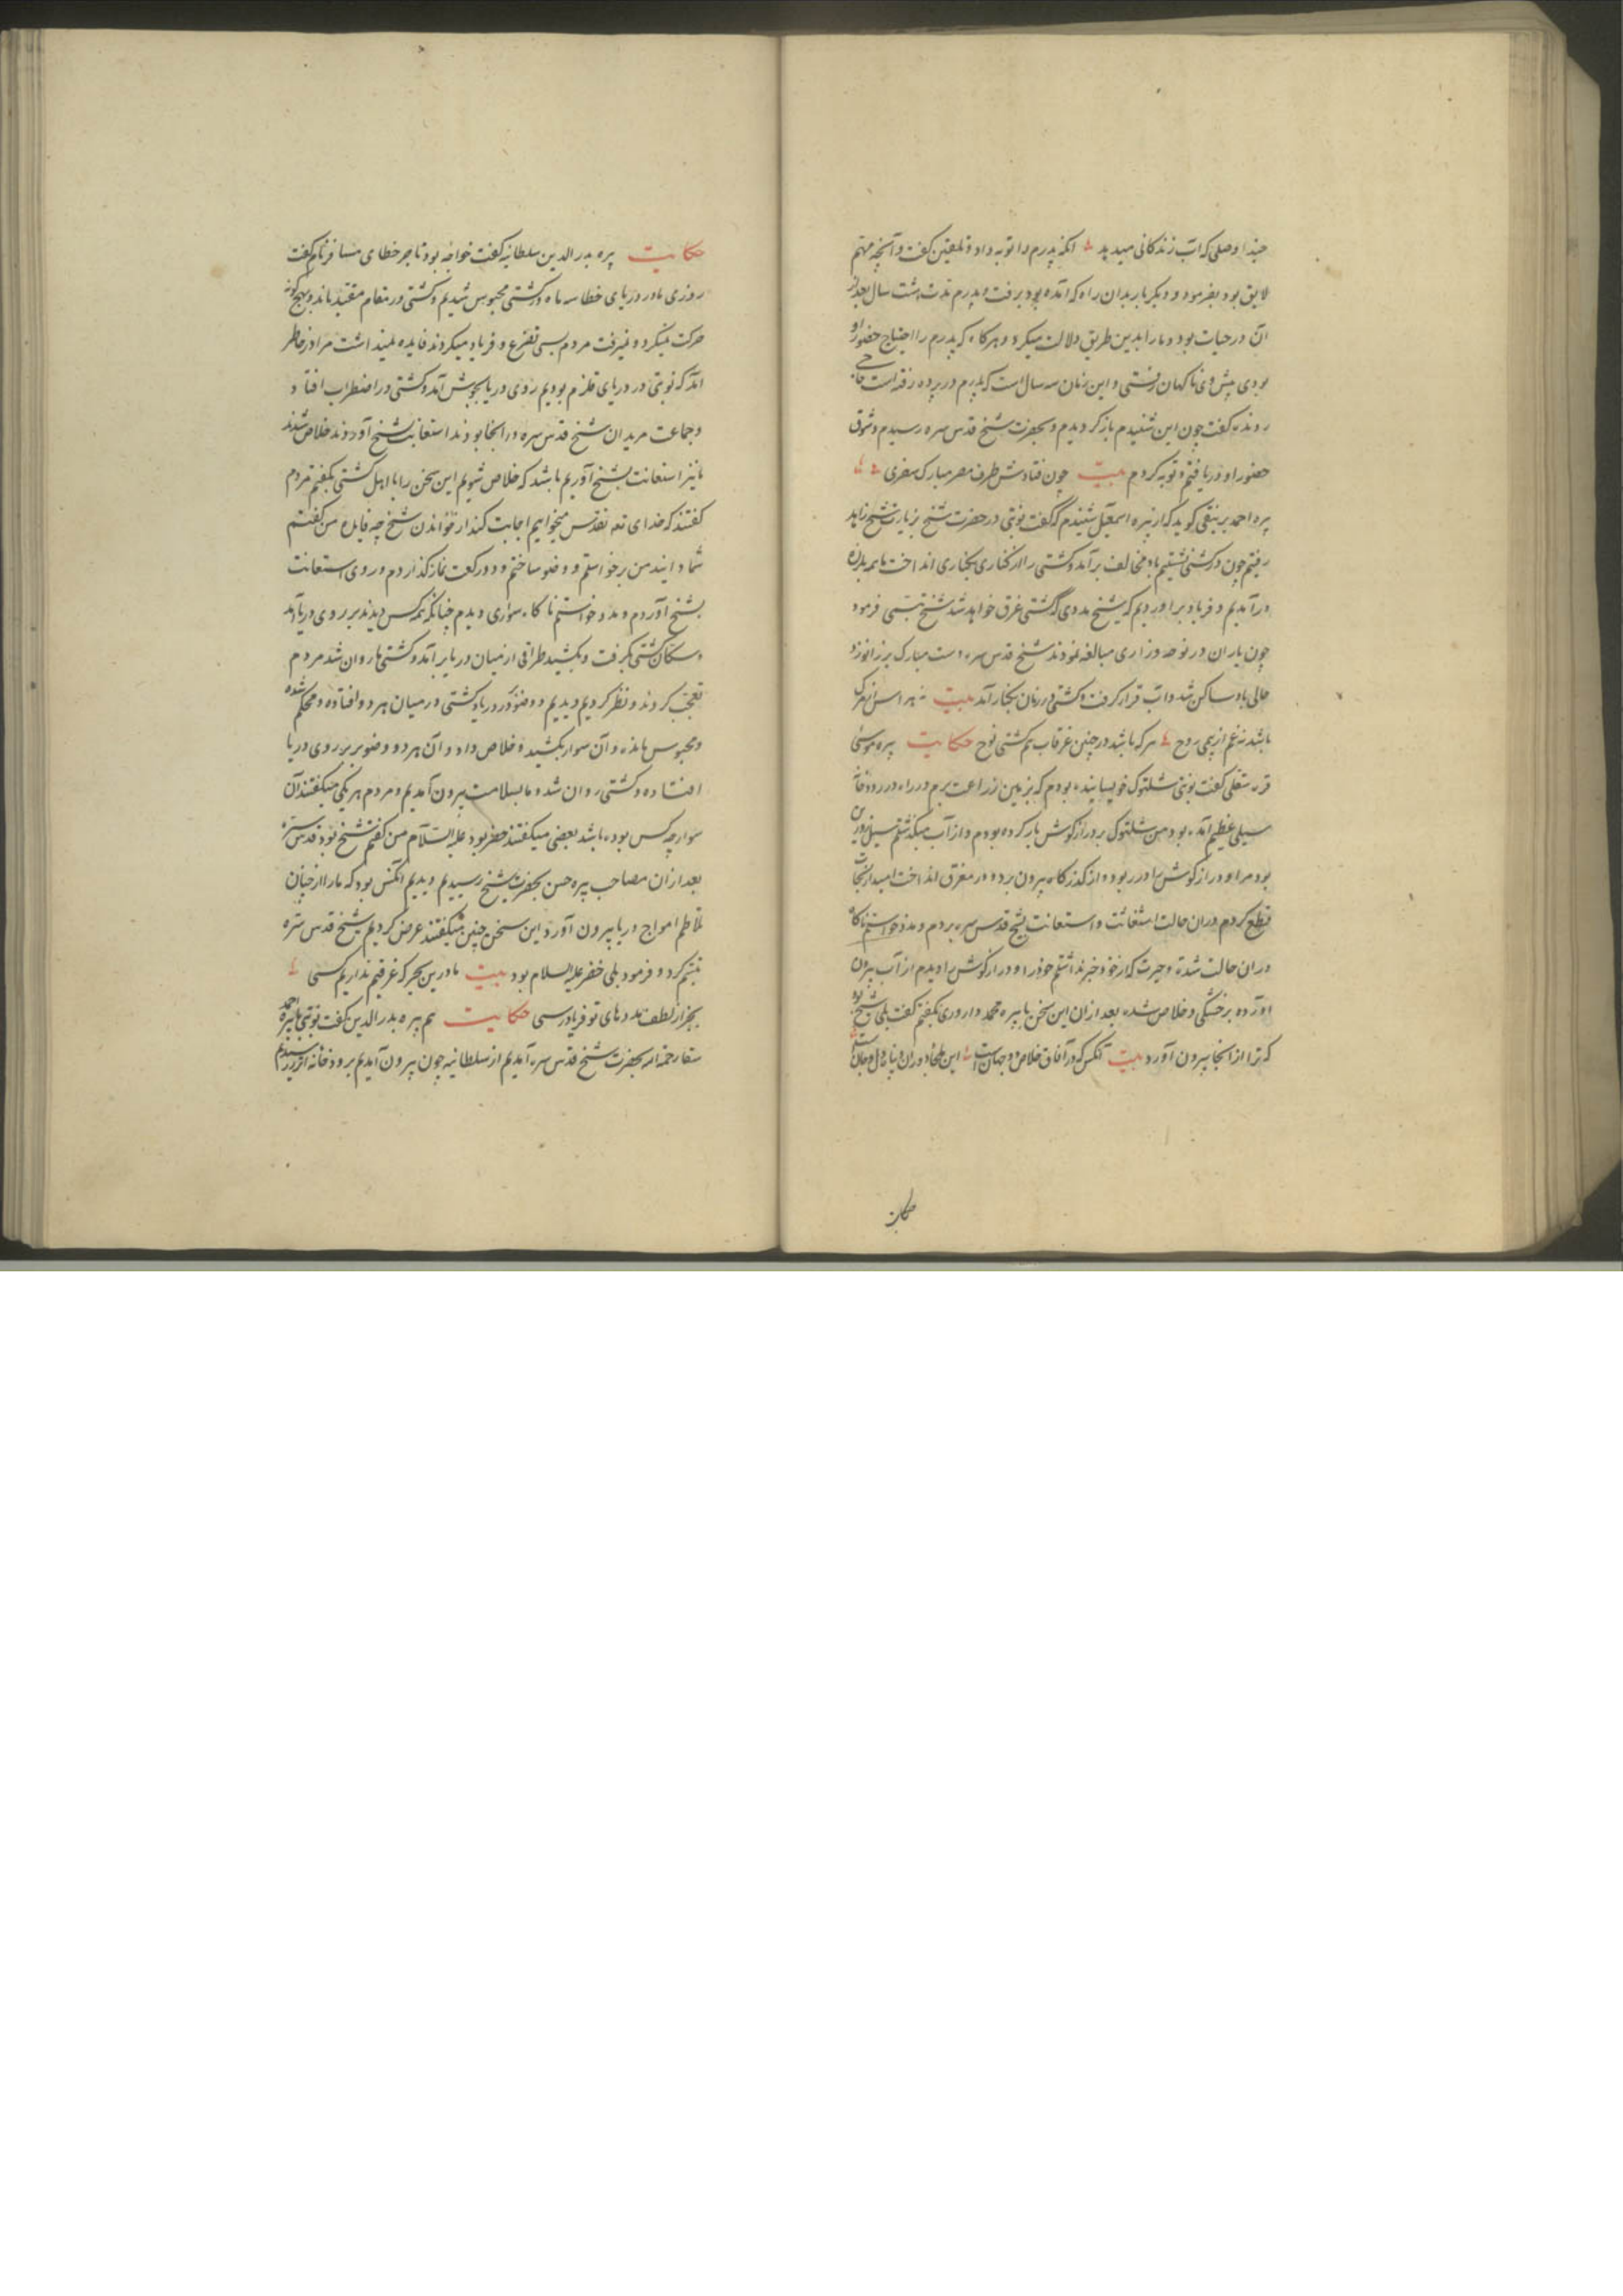 حبذا وصلی که آب زندگانی میدهد انکه پدرم را توبه داد و تلقین گفت و آنچه مهتم
لایق بود بفرمود و دیگر بار بدان راه که آمده بود برفت و پدرم مدت هشت سال بعد از
آن در حیات بود و ما را بدین طریق دلالت میکرد و هرگاه که پدرم را احتیاج حضور او
بودی پیش وی ناکهان رفتی و این زمان سه سال است که پدرم در پرده رفته است
رونده گفت چون این شنیدم باز کردیدم و بحضرت شیخ قدس سره رسیدم و شوق
حضور او دریافتم و توبه کردم بیت چون فتادش طرف مصر مبارک سفری
پیره احمد برنیقی کوید که از پیره اسمعیل شنیدم که گفت نوبتی در حضرت شیخ بزیارت شیخ زاهد
رفتیم چون در کشتی نشستیم باد مخالف برآمد و کشتی را از کناری بکناری انداخت ما همه بلرزه
درآمدیم و فریاد برآوردیم که شیخ مددی که کشتی غرق خواهد شد شیخ تبسمی فرمود
چون یاران در نوحه و زاری مبالغه نمودند شیخ قدس سره دست مبارک بر زانو زد
حالی باد ساکن شد و آب قرار گرفت و کشتی در زمان بکنار آمد بیت نه هراس از مرک
باشد نه غم از پی روح هر که باشد در چنین غرقاب هم کشتی نوح حکایت پیره موسی
قره سقلی گفت نوبتی شلتوک خویسانیده بودم که بزمین زراعت برم در راه در رودخانه
سیلی عظیم آمده بود من شلتوک بر درازکوش بار کرده بودم و از آب میکذشتم سیل زور
بود مرا و درازکوش را در ربود و از کذرکاه بیرون برد و در مغرق انداخت امید از نجات
قطع کردم دران حالت استغاثت و استعانت بشیخ قدس سره بردم و مدد خواستم ناکاه
دران حالت شده و حیرت که از خود خبر نداشتم خود را و درازکوش را دیدم از آب بیرون
آورده بر خشکی و خلاص شده بعد ازان این سخن با پیره محمد داروری بگفتم گفت بلی شیخ بود
که ترا از انجا بیرون آورد بیت آنکس که در آفاق خلاص دو جهان است این ملجا دوران و پناه دل و جان است
حکایت
حکایت پیره بدر الدین سلطانیه گفت خواجه بود تاجر خطای مسافر نام گفت
روزی ما در دریای خطا سه ماه در کشتی محبوس شدیم و کشتی در مقام مقید بماند و بهیچ کونه
حرکت نمیکرد و نمیرفت مردم بسی تضرع و فریاد میکردند فایده نمیداشت مرا در خاطر
آمد که نوبتی در دریای قلزم بودیم روی دریا بجوش آمد و کشتی در اضطراب افتاد
و جماعت مریدان شیخ قدس سره در انجا بودند استعانت بشیخ آوردند خلاص شدند
ما نیز استعانت بشیخ آوریم باشد که خلاص شویم این سخن را با اهل کشتی بگفتم مردم
گفتند که خدای تعه تقدس میخوانیم اجابت کند از خواندن شیخ چه فایده من گفتم
شما دانید من برخواستم و وضو ساختم و دو رکعت نماز گذاردم و روی استعانت
بشیخ آوردم و مدد خواستم ناکاه سواری دیدم چنانکه همه کس دیدند بر روی دریا آمد
و سکان کشتی بگرفت و بکشید طراقی از میان دریا برآمد و کشتی ما روان شد مردم
تعجب کردند و نظر کردیم و دیدیم دو صنوبر در دریا و کشتی در میان هر دو افتاده و محکم شده
و محبوس مانده و آن سوار بکشید و خلاص داد و آن هر دو صنوبر بر روی دریا
افتاده و کشتی روان شد و ما بسلامت بیرون آمدیم و مردم هر یکی میگفتند آن
سوار چه کس بوده باشد بعضی میگفتند خضر بود علیه السلام من گفتم شیخ بود قدس سره
بعد ازان مصاحب پیره حسن بحضرت شیخ رسیدیم و دیدیم آنکس بود که ما را از چنان
تلاطم امواج دریا بیرون آورد این سخن چنین میگفتند عرض کردیم شیخ قدس سره
تبسم کرد و فرمود بلی خضر علیه السلام بود بیت ما درین بحر که غرقیم نداریم کسی
بجز از لطف مددهای تو فریادرسی حکایت هم پیره بدر الدین گفت نوبتی با پیره احمد
سقا رحمه الله بحضرت شیخ قدس سره آمدیم از سلطانیه چون بیرون آمدیم برودخانه رسیدیم